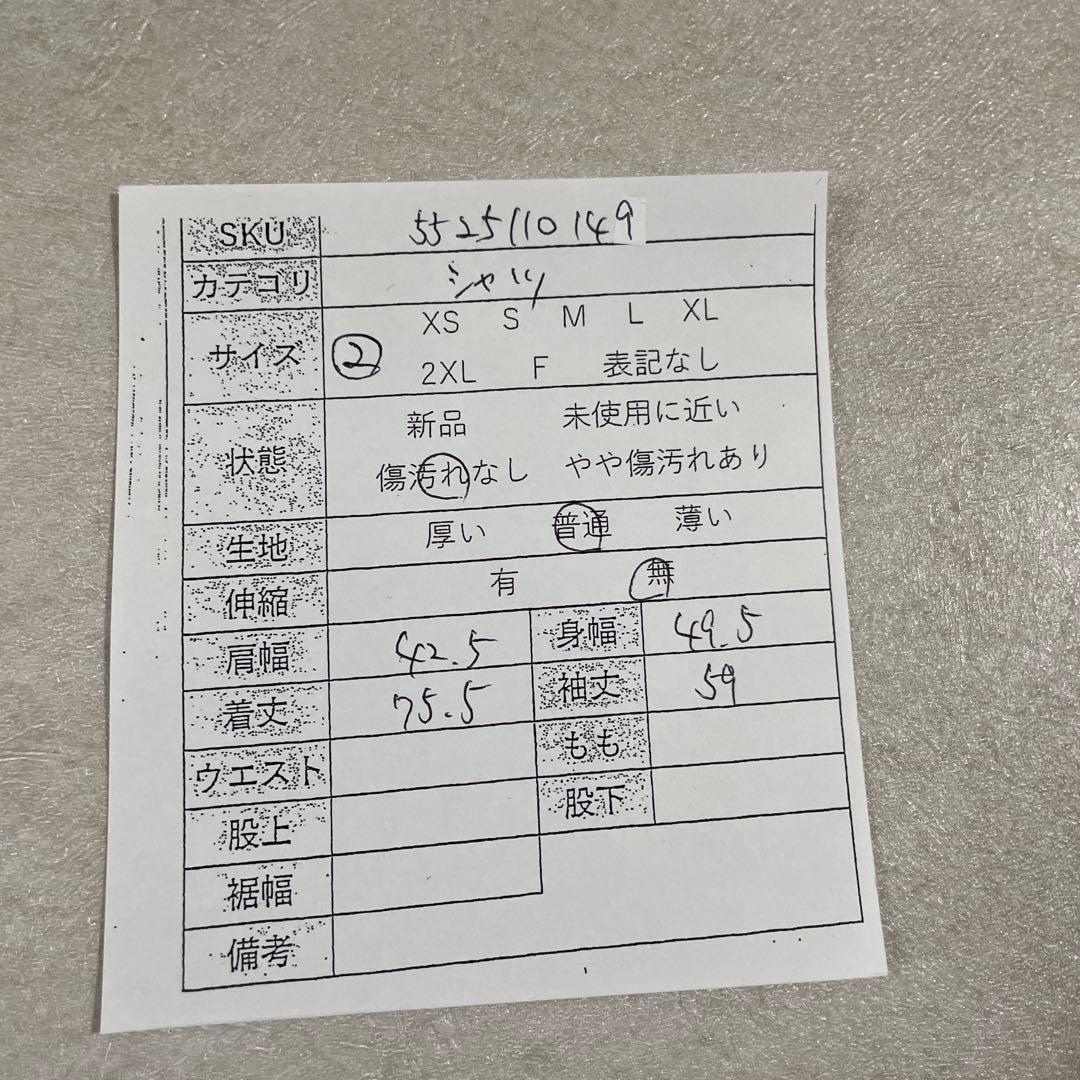 SKU 5525110149
カテゴリ シャツ
XS S M L XL
サイズ ②
2XL F 表記なし
新品 未使用に近い
状態
傷汚れなし やや傷汚れあり
生地 厚い 普通 薄い
伸縮 有 無
肩幅 42.5 身幅 49.5
着丈 75.5 袖丈 59
ウエスト もも
股上 股下
裾幅
備考